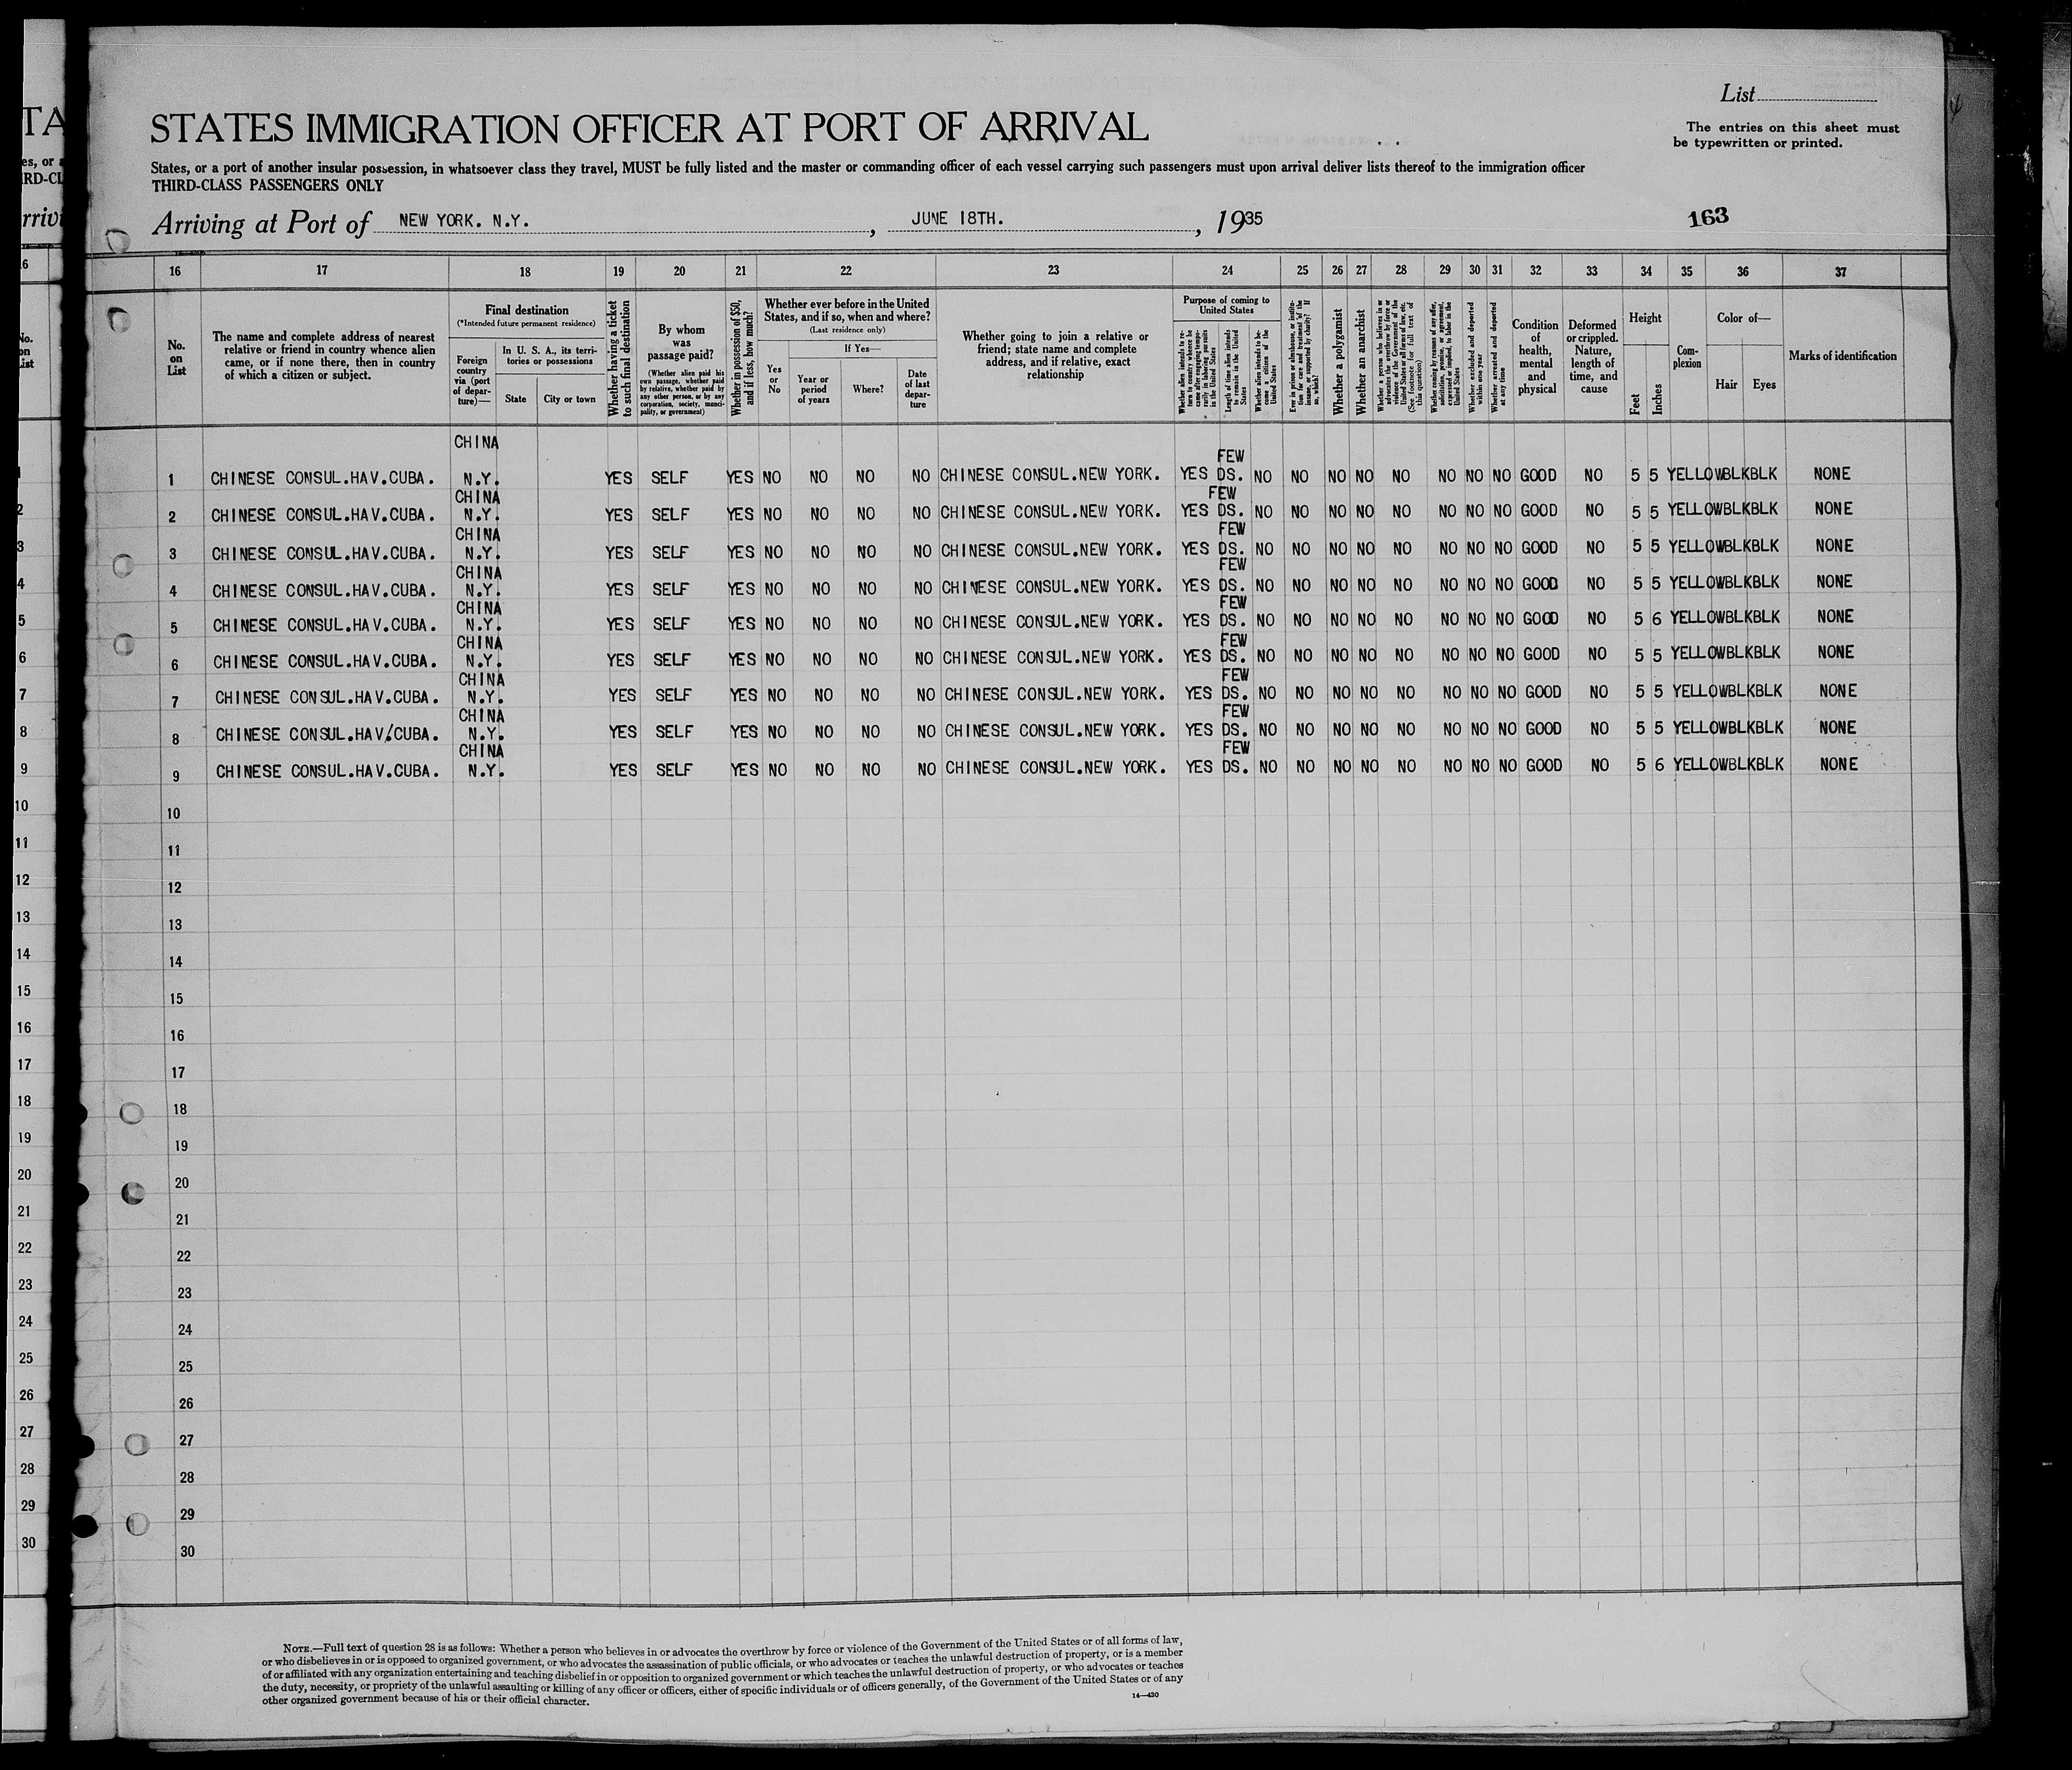 List
STATES IMMIGRATION OFFICER AT PORT OF ARRIVAL
The entries on this sheet must
be typewritten or printed.
States, or a port of another insular possession, in whatsoever class they travel, MUST be fully listed and the master or commanding officer of each vessel carrying such passengers must upon arrival deliver lists thereof to the immigration officer
THIRD-CLASS PASSENGERS ONLY
Arriving at Port of NEW YORK. N.Y. , JUNE 18TH. , 1935
163
16 17 18 19 20 21 22 23 24 25 26 27 28 29 30 31 32 33 34 35 36 37
No. on List
The name and complete address of nearest relative or friend in country whence alien came, or if none there, then in country of which a citizen or subject.
Final destination
(*Intended future permanent residence)
Foreign country via (port of departure)—
In U. S. A., its territories or possessions
State
City or town
Whether having a ticket to such final destination
By whom was passage paid?
(Whether alien paid his own passage, whether paid by relative, whether paid by any other person, or by any corporation, society, municipality, or government)
Whether in possession of $50, and if less, how much?
Whether ever before in the United States, and if so, when and where?
(Last residence only)
Yes or No
If Yes—
Year or period of years
Where?
Date of last departure
Whether going to join a relative or friend; state name and complete address, and if relative, exact relationship
Purpose of coming to United States
Whether alien intends to return to country whence he came after engaging temporarily in laboring pursuits in the United States
Length of time alien intends to remain in the United States
Whether alien intends to become a citizen of the United States
Ever in prison or almshouse, or institution for care and treatment of the insane, or supported by charity? If so, which?
Whether a polygamist
Whether an anarchist
Whether a person who believes in or advocates the overthrow by force or violence of the Government of the United States or all forms of law, etc. (See footnote for full text of this question)
Whether coming by reasons of any offer, solicitation, promise, or agreement, expressed or implied, to labor in the United States
Whether excluded and deported within one year
Whether arrested and deported at any time
Condition of health, mental and physical
Deformed or crippled. Nature, length of time, and cause
Height
Feet
Inches
Complexion
Color of—
Hair
Eyes
Marks of identification
CHINA FEW
1 CHINESE CONSUL.HAV.CUBA. N.Y. YES SELF YES NO NO NO NO CHINESE CONSUL.NEW YORK. YES DS. NO NO NO NO NO NO NO NO GOOD NO 5 5 YELLOW BLK BLK NONE
CHINA FEW
2 CHINESE CONSUL.HAV.CUBA. N.Y. YES SELF YES NO NO NO NO CHINESE CONSUL.NEW YORK. YES DS. NO NO NO NO NO NO NO NO GOOD NO 5 5 YELLOW BLK BLK NONE
CHINA FEW
3 CHINESE CONSUL.HAV.CUBA. N.Y. YES SELF YES NO NO NO NO CHINESE CONSUL.NEW YORK. YES DS. NO NO NO NO NO NO NO NO GOOD NO 5 5 YELLOW BLK BLK NONE
CHINA FEW
4 CHINESE CONSUL.HAV.CUBA. N.Y. YES SELF YES NO NO NO NO CHINESE CONSUL.NEW YORK. YES DS. NO NO NO NO NO NO NO NO GOOD NO 5 5 YELLOW BLK BLK NONE
CHINA FEW
5 CHINESE CONSUL.HAV.CUBA. N.Y. YES SELF YES NO NO NO NO CHINESE CONSUL.NEW YORK. YES DS. NO NO NO NO NO NO NO NO GOOD NO 5 6 YELLOW BLK BLK NONE
CHINA FEW
6 CHINESE CONSUL.HAV.CUBA. N.Y. YES SELF YES NO NO NO NO CHINESE CONSUL.NEW YORK. YES DS. NO NO NO NO NO NO NO NO GOOD NO 5 5 YELLOW BLK BLK NONE
CHINA FEW
7 CHINESE CONSUL.HAV.CUBA. N.Y. YES SELF YES NO NO NO NO CHINESE CONSUL.NEW YORK. YES DS. NO NO NO NO NO NO NO NO GOOD NO 5 5 YELLOW BLK BLK NONE
CHINA FEW
8 CHINESE CONSUL.HAV/CUBA. N.Y. YES SELF YES NO NO NO NO CHINESE CONSUL.NEW YORK. YES DS. NO NO NO NO NO NO NO NO GOOD NO 5 5 YELLOW BLK BLK NONE
CHINA FEW
9 CHINESE CONSUL.HAV.CUBA. N.Y. YES SELF YES NO NO NO NO CHINESE CONSUL.NEW YORK. YES DS. NO NO NO NO NO NO NO NO GOOD NO 5 6 YELLOW BLK BLK NONE
10
11
12
13
14
15
16
17
18
19
20
21
22
23
24
25
26
27
28
29
30
NOTE.—Full text of question 28 is as follows: Whether a person who believes in or advocates the overthrow by force or violence of the Government of the United States or of all forms of law,
or who disbelieves in or is opposed to organized government, or who advocates the assassination of public officials, or who advocates or teaches the unlawful destruction of property, or is a member
of or affiliated with any organization entertaining and teaching disbelief in or opposition to organized government or which teaches the unlawful destruction of property, or who advocates or teaches
the duty, necessity, or propriety of the unlawful assaulting or killing of any officer or officers, either of specific individuals or of officers generally, of the Government of the United States or of any
other organized government because of his or their official character.
14—430